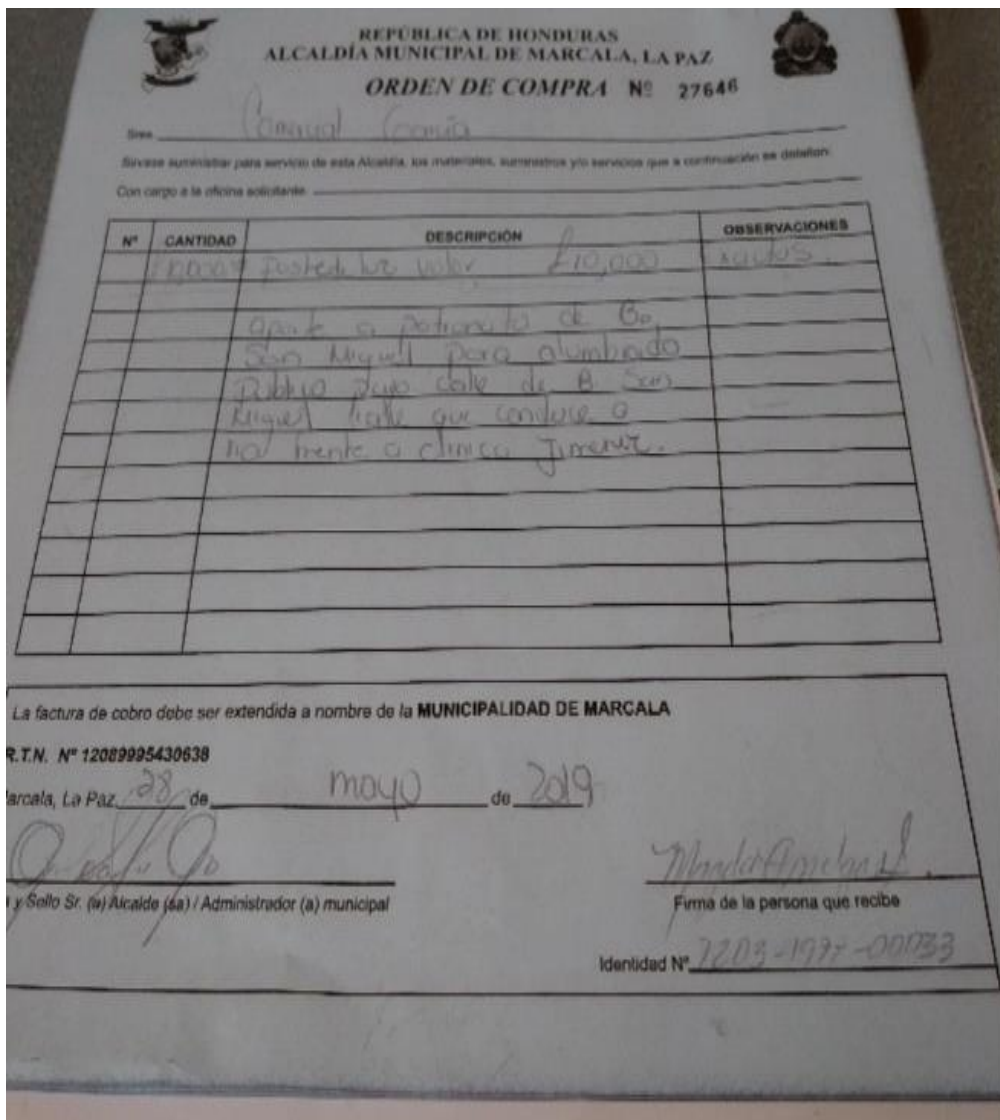 REPÚBLICA DE HONDURAS
ALCALDÍA MUNICIPAL DE MARCALA, LA PAZ
ORDEN DE COMPRA Nº 27646
Sres.
Sírvase suministrar para servicio de esta Alcaldía, los materiales, suministros y/o servicios que a continuación se detallan:
Con cargo a la oficina solicitante
Nº CANTIDAD DESCRIPCIÓN OBSERVACIONES
Poste de luz valor 10,000
a patronato de Bo.
San Miguel para alumbrado
calle de B. San
Miguel que conduce a
frente a clinica Jimenez.
La factura de cobro debe ser extendida a nombre de la MUNICIPALIDAD DE MARCALA
R.T.N. Nº 12089995430638
Marcala, La Paz 28 de mayo de 2019
y Sello Sr. (a) Alcalde (sa) / Administrador (a) municipal
Firma de la persona que recibe
Identidad Nº